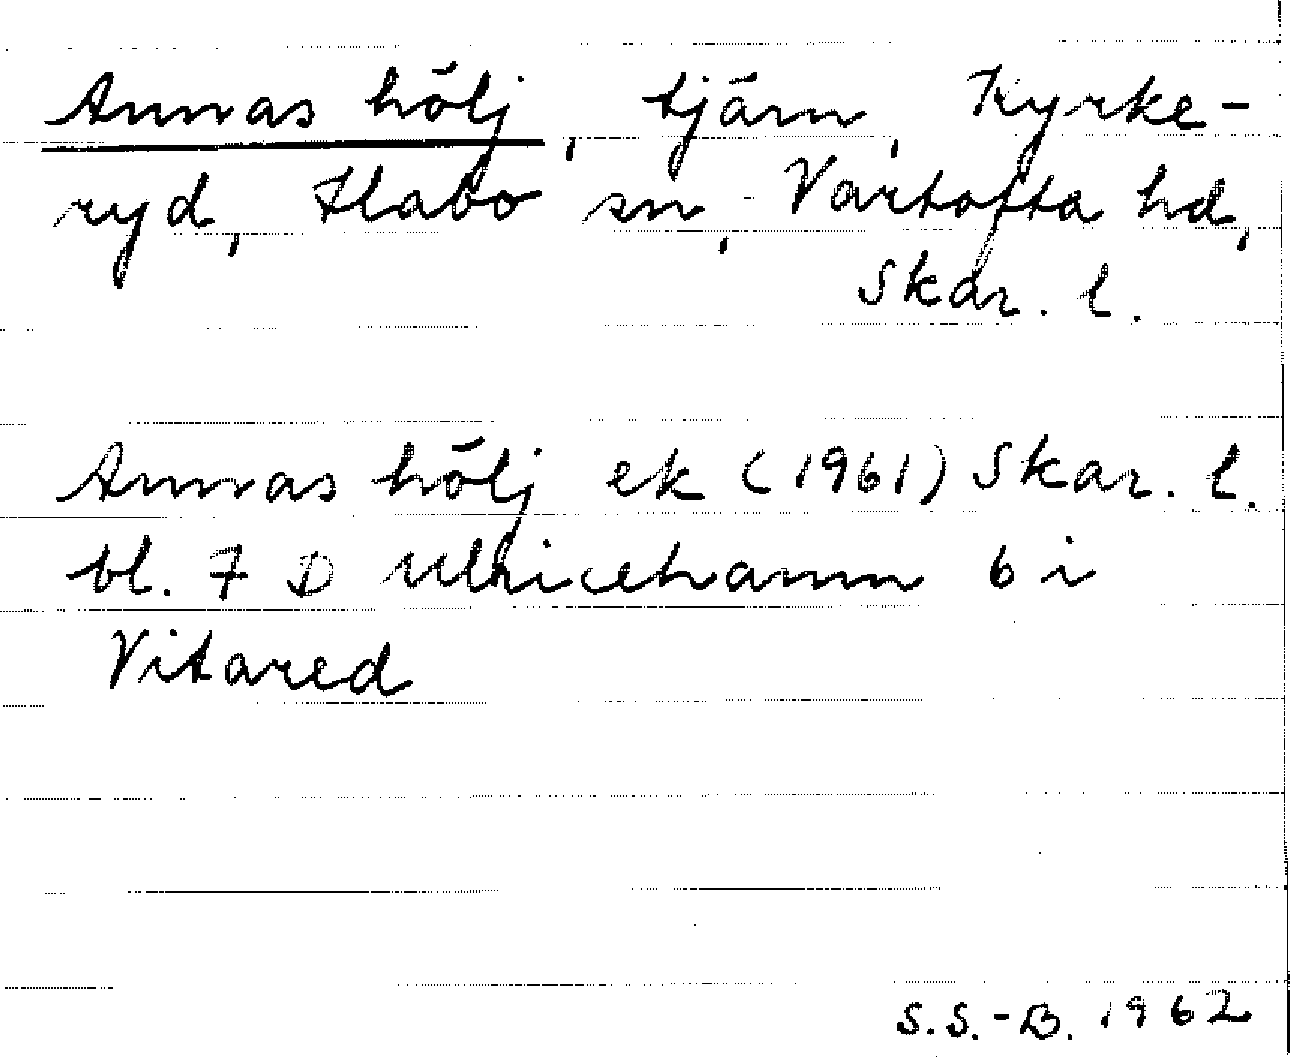 Annas hölj, tjärn, Kyrke-
ryd, Habo sn, Vartofta hd,
Skar. l.
Annas hölj ek (1961) Skar. l.
bl. 7 D Ulricehamn 6 i
Vitared
S.S.-B. 1962